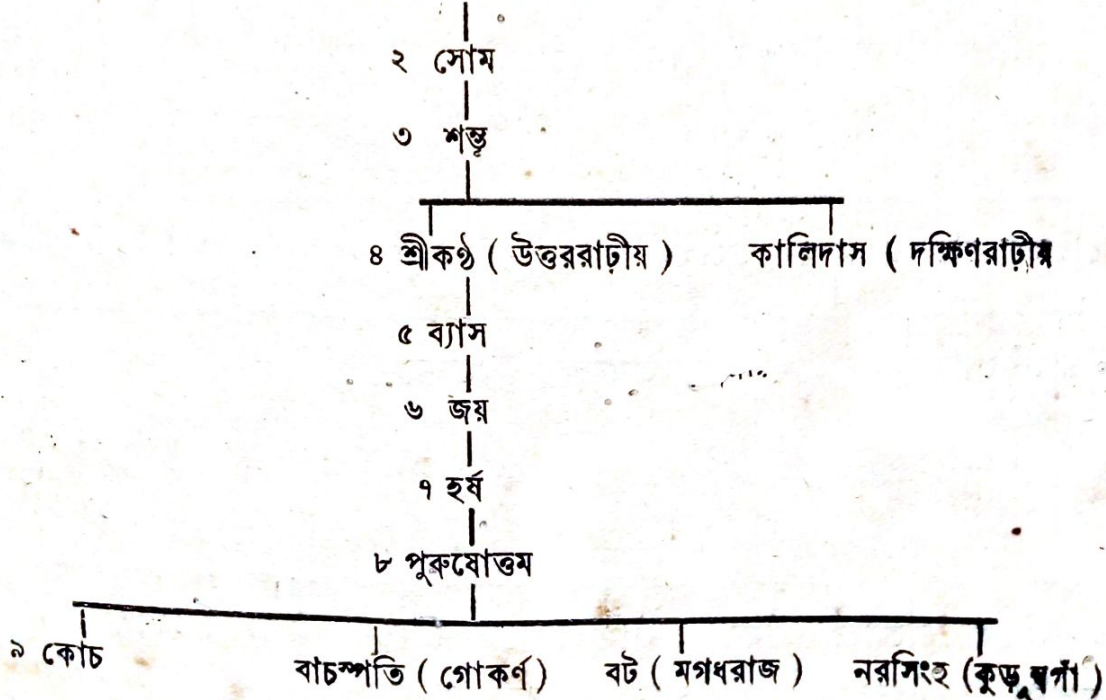 ২ সোম
৩ শম্ভূ
৪ শ্রীকণ্ঠ ( উত্তররাঢ়ীয় ) কালিদাস ( দক্ষিণরাঢ়ীয়
৫ ব্যাস
৬ জয়
৭ হর্ষ
৮ পুরুষোত্তম
৯ কোচ বাচস্পতি ( গোকর্ণ ) বট ( মগধরাজ ) নরসিংহ